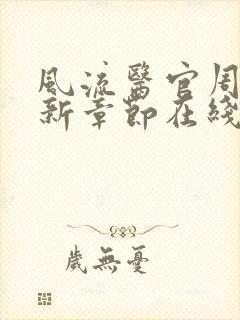 風流醫官周
新章節在綫
歲無憂